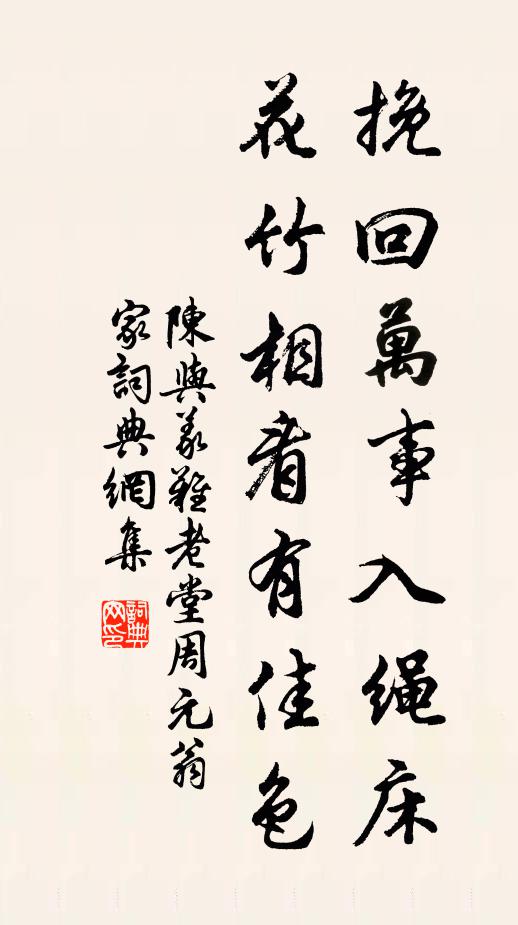 挽回萬事入绳床
花竹相看有佳色
陳與义難老堂周元翁
家詞典網集
詞典
网印